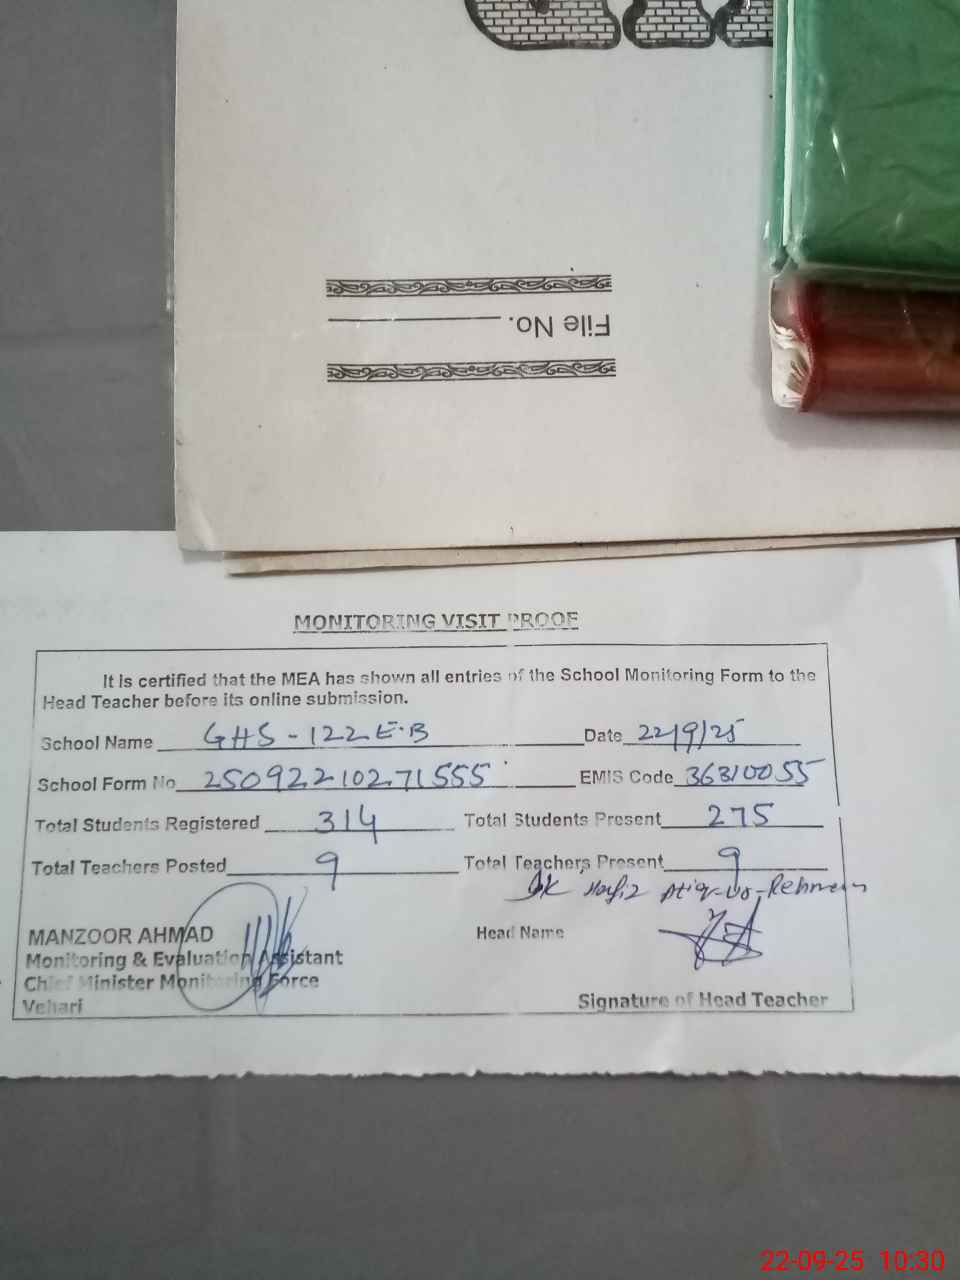 File No.
MONITORING VISIT PROOF
It is certified that the MEA has shown all entries of the School Monitoring Form to the
Head Teacher before its online submission.
School Name GHS-122 E.B Date 22/9/25
School Form No 25092210271555 EMIS Code 36310055
Total Students Registered 314 Total Students Present 275
Total Teachers Posted 9 Total Teachers Present 9
Hafiz Atiq-ur-Rehman
MANZOOR AHMAD Head Name
Monitoring & Evaluation Assistant
Chief Minister Monitoring Force
Vehari Signature of Head Teacher
22-09-25 10:30